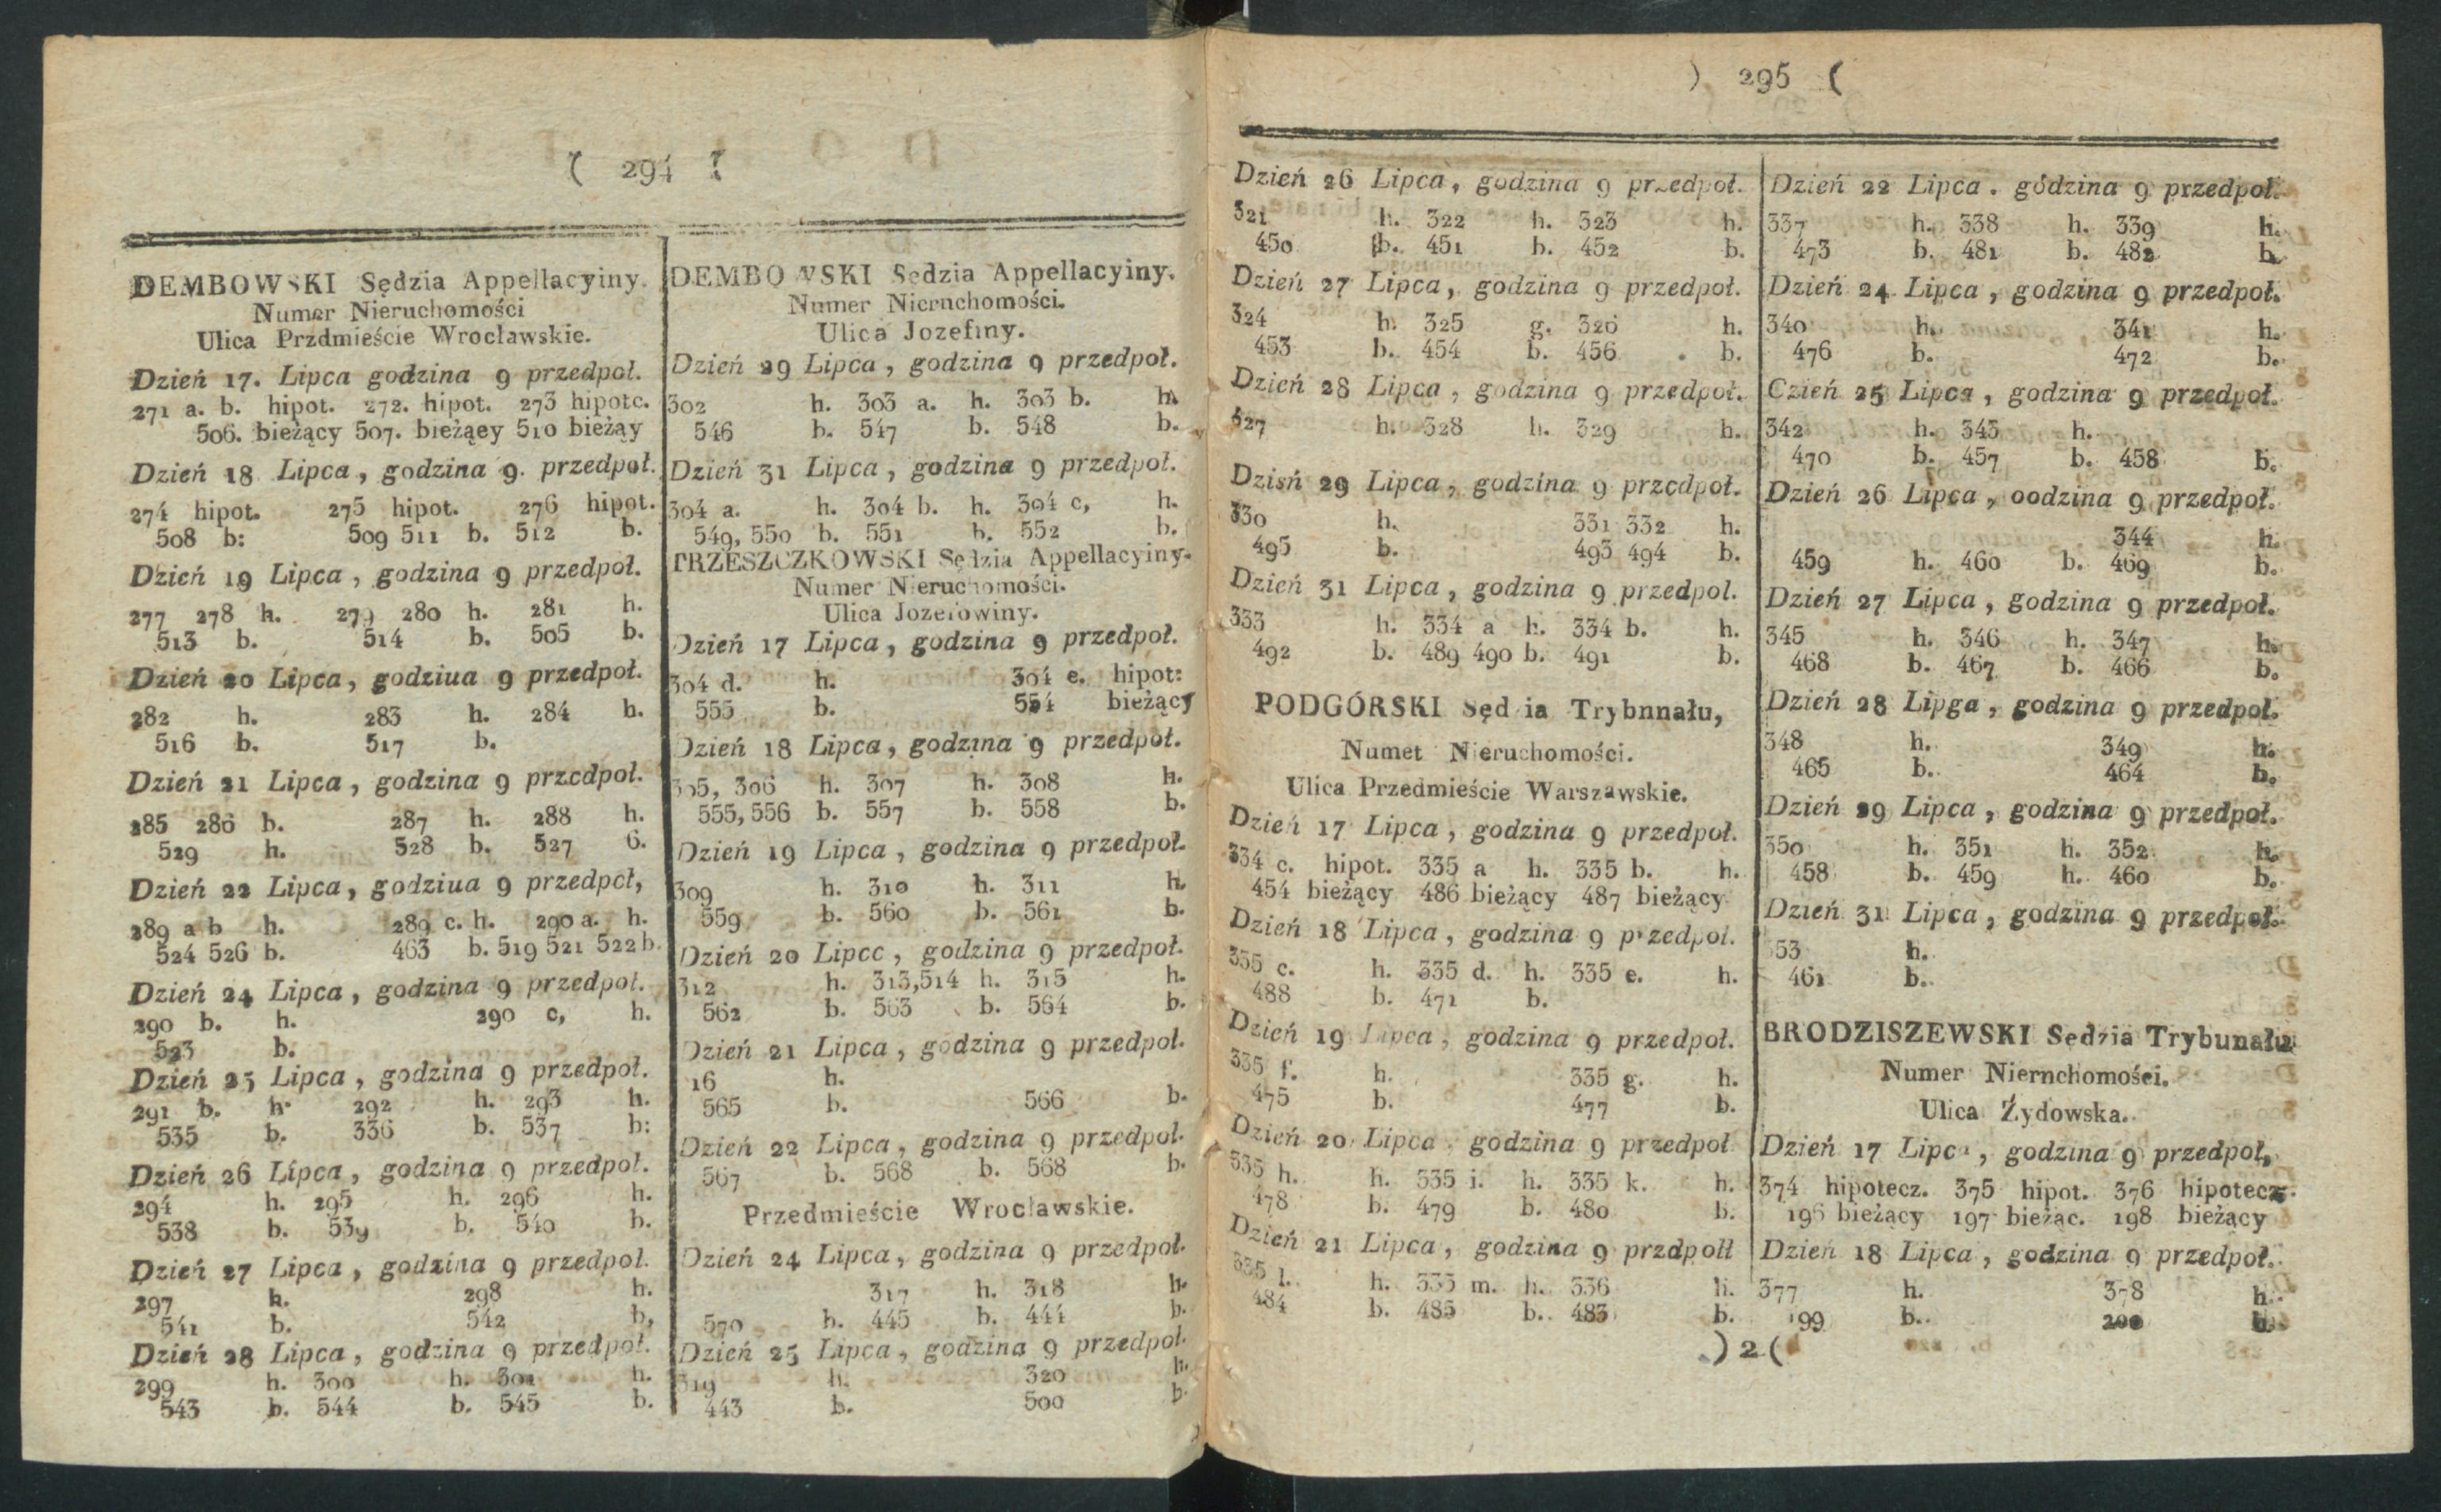 ( 294 (
DEMBOWSKI Sędzia Appellacyiny.
Numer Nieruchomości
Ulica Przdmieście Wrocławskie.
Dzień 17. Lipca godzina 9 przedpoł.
271 a. b. hipot. 272. hipot. 273 hipotc.
506. bieżący 507. bieżąey 510 bieżąy
Dzień 18 Lipca, godzina 9. przedpoł.
274 hipot. 275 hipot. 276 hipot.
508 b: 509 511 b. 512 b.
Dzień 19 Lipca, godzina 9 przedpoł.
277 278 h. 279 280 h. 281 h.
513 b. 514 b. 505 b.
Dzień 20 Lipca, godziua 9 przedpoł.
282 h. 283 h. 284 h.
516 b. 517 b.
Dzień 21 Lipca, godzina 9 przcdpoł.
285 286 b. 287 h. 288 h.
529 h. 528 b. 527 6.
Dzień 22 Lipca, godziua 9 przedpcł,
289 a b h. 289 c. h. 290 a. h.
524 526 b. 463 b. 519 521 522 b.
Dzień 24 Lipca, godzina 9 przedpoł.
290 b. h. 290 c, h.
523 b.
Dzień 25 Lipca, godzina 9 przedpoł.
291 b. h. 292 h. 293 h.
535 b. 336 b. 537 b:
Dzień 26 Lipca, godzina 9 przedpoł.
294 h. 295 h. 296 h.
538 b. 539 b. 540 b.
Dzień 27 Lipca, godzina 9 przedpoł.
297 h. 298 h.
541 b. 542 b,
Dzień 28 Lipca, godzina 9 przedpoł.
299 h. 300 h. 301 h.
543 b. 544 b. 545 b.
DEMBOWSKI Sędzia Appellacyiny.
Numer Niernchomości.
Ulica Jozefiny.
Dzień 29 Lipca, godzina 9 przedpoł.
302 h. 303 a. h. 303 b. h.
546 b. 547 b. 548 b.
Dzień 31 Lipca, godzina 9 przedpoł.
304 a. h. 304 b. h. 304 c, h.
549, 550 b. 551 b. 552 b.
TRZESZCZKOWSKI Sędzia Appellacyiny.
Numer Nieruchomości.
Ulica Jozefowiny.
Dzień 17 Lipca, godzina 9 przedpoł.
304 d. h. 304 e. hipot:
553 b. 554 bieżący
Dzień 18 Lipca, godzina 9 przedpoł.
305, 306 h. 307 h. 308 h.
555, 556 b. 557 b. 558 b.
Dzień 19 Lipca, godzina 9 przedpoł.
309 h. 310 h. 311 h.
559 b. 560 b. 561 b.
Dzień 20 Lipcc, godzina 9 przedpoł.
312 h. 313,514 h. 315 h.
562 b. 563 b. 564 b.
Dzień 21 Lipca, godzina 9 przedpoł.
16 h.
565 b. 566 b.
Dzień 22 Lipca, godzina 9 przedpoł.
567 b. 568 b. 568 b.
Przedmieście Wrocławskie.
Dzień 24 Lipca, godzina 9 przedpoł.
317 h. 318 h.
570 b. 445 b. 444 b.
Dzień 25 Lipca, godzina 9 przedpoł.
319 h. 320 h.
443 b. 500 b.
) 295 (
Dzień 26 Lipca, godzina 9 przedpoł.
321 h. 322 h. 323 h.
450 b. 451 b. 452 b.
Dzień 27 Lipca, godzina 9 przedpoł.
324 h. 325 g. 326 h.
453 b. 454 b. 456 b.
Dzień 28 Lipca, godzina 9 przedpoł.
327 h. 328 h. 329 h.
Dzisń 29 Lipca, godzina 9 przcdpoł.
330 h. 331 332 h.
495 b. 493 494 b.
Dzień 31 Lipca, godzina 9 przedpoł.
333 h. 334 a h. 334 b. h.
492 b. 489 490 b. 491 b.
PODGÓRSKI Sęd ia Trybnnału,
Numet Nieruchomości.
Ulica Przedmieście Warszawskie.
Dzień 17 Lipca, godzina 9 przedpoł.
334 c. hipot. 335 a h. 335 b. h.
454 bieżący 486 bieżący 487 bieżący
Dzień 18 Lipca, godzina 9 przedpoł.
335 c. h. 335 d. h. 335 e. h.
488 b. 471 b.
Dzień 19 Lipca, godzina 9 przedpoł.
335 f. h. 335 g. h.
475 b. 477 b.
Dzień 20 Lipca, godzina 9 przedpoł
335 h. h. 335 i. h. 335 k. h.
478 b. 479 b. 480 b.
Dzień 21 Lipca, godzina 9 przdpołl
335 l. h. 335 m. h. 336 h.
484 b. 485 b. 483 b.
Dzień 22 Lipca. godzina 9 przedpoł.
337 h. 338 h. 339 h.
473 b. 481 b. 482 b.
Dzień 24 Lipca, godzina 9 przedpoł.
340 h. 341 h.
476 b. 472 b.
Czień 25 Lipca, godzina 9 przedpoł.
342 h. 343 h.
470 b. 457 b. 458 b.
Dzień 26 Lipca, oodzina 9 przedpoł.
344 h.
459 h. 460 b. 469 b.
Dzień 27 Lipca, godzina 9 przedpoł.
345 h. 346 h. 347 h.
468 b. 467 b. 466 b.
Dzień 28 Lipga, godzina 9 przedpoł.
348 h. 349 h.
465 b. 464 b.
Dzień 29 Lipca, godzina 9 przedpoł.
350 h. 351 h. 352 h.
458 b. 459 h. 460 b.
Dzień 31 Lipca, godzina 9 przedpoł.
53 h.
461 b.
BRODZISZEWSKI Sędzia Trybunału
Numer Niernchomości.
Ulica Żydowska.
Dzień 17 Lipca, godzina 9 przedpoł,
374 hipotecz. 375 hipot. 376 hipotecz.
196 bieżący 197 bieżąc. 198 bieżący
Dzień 18 Lipca, godzina 9 przedpoł.
377 h. 378 h.
199 b. 200 b.
) 2 (